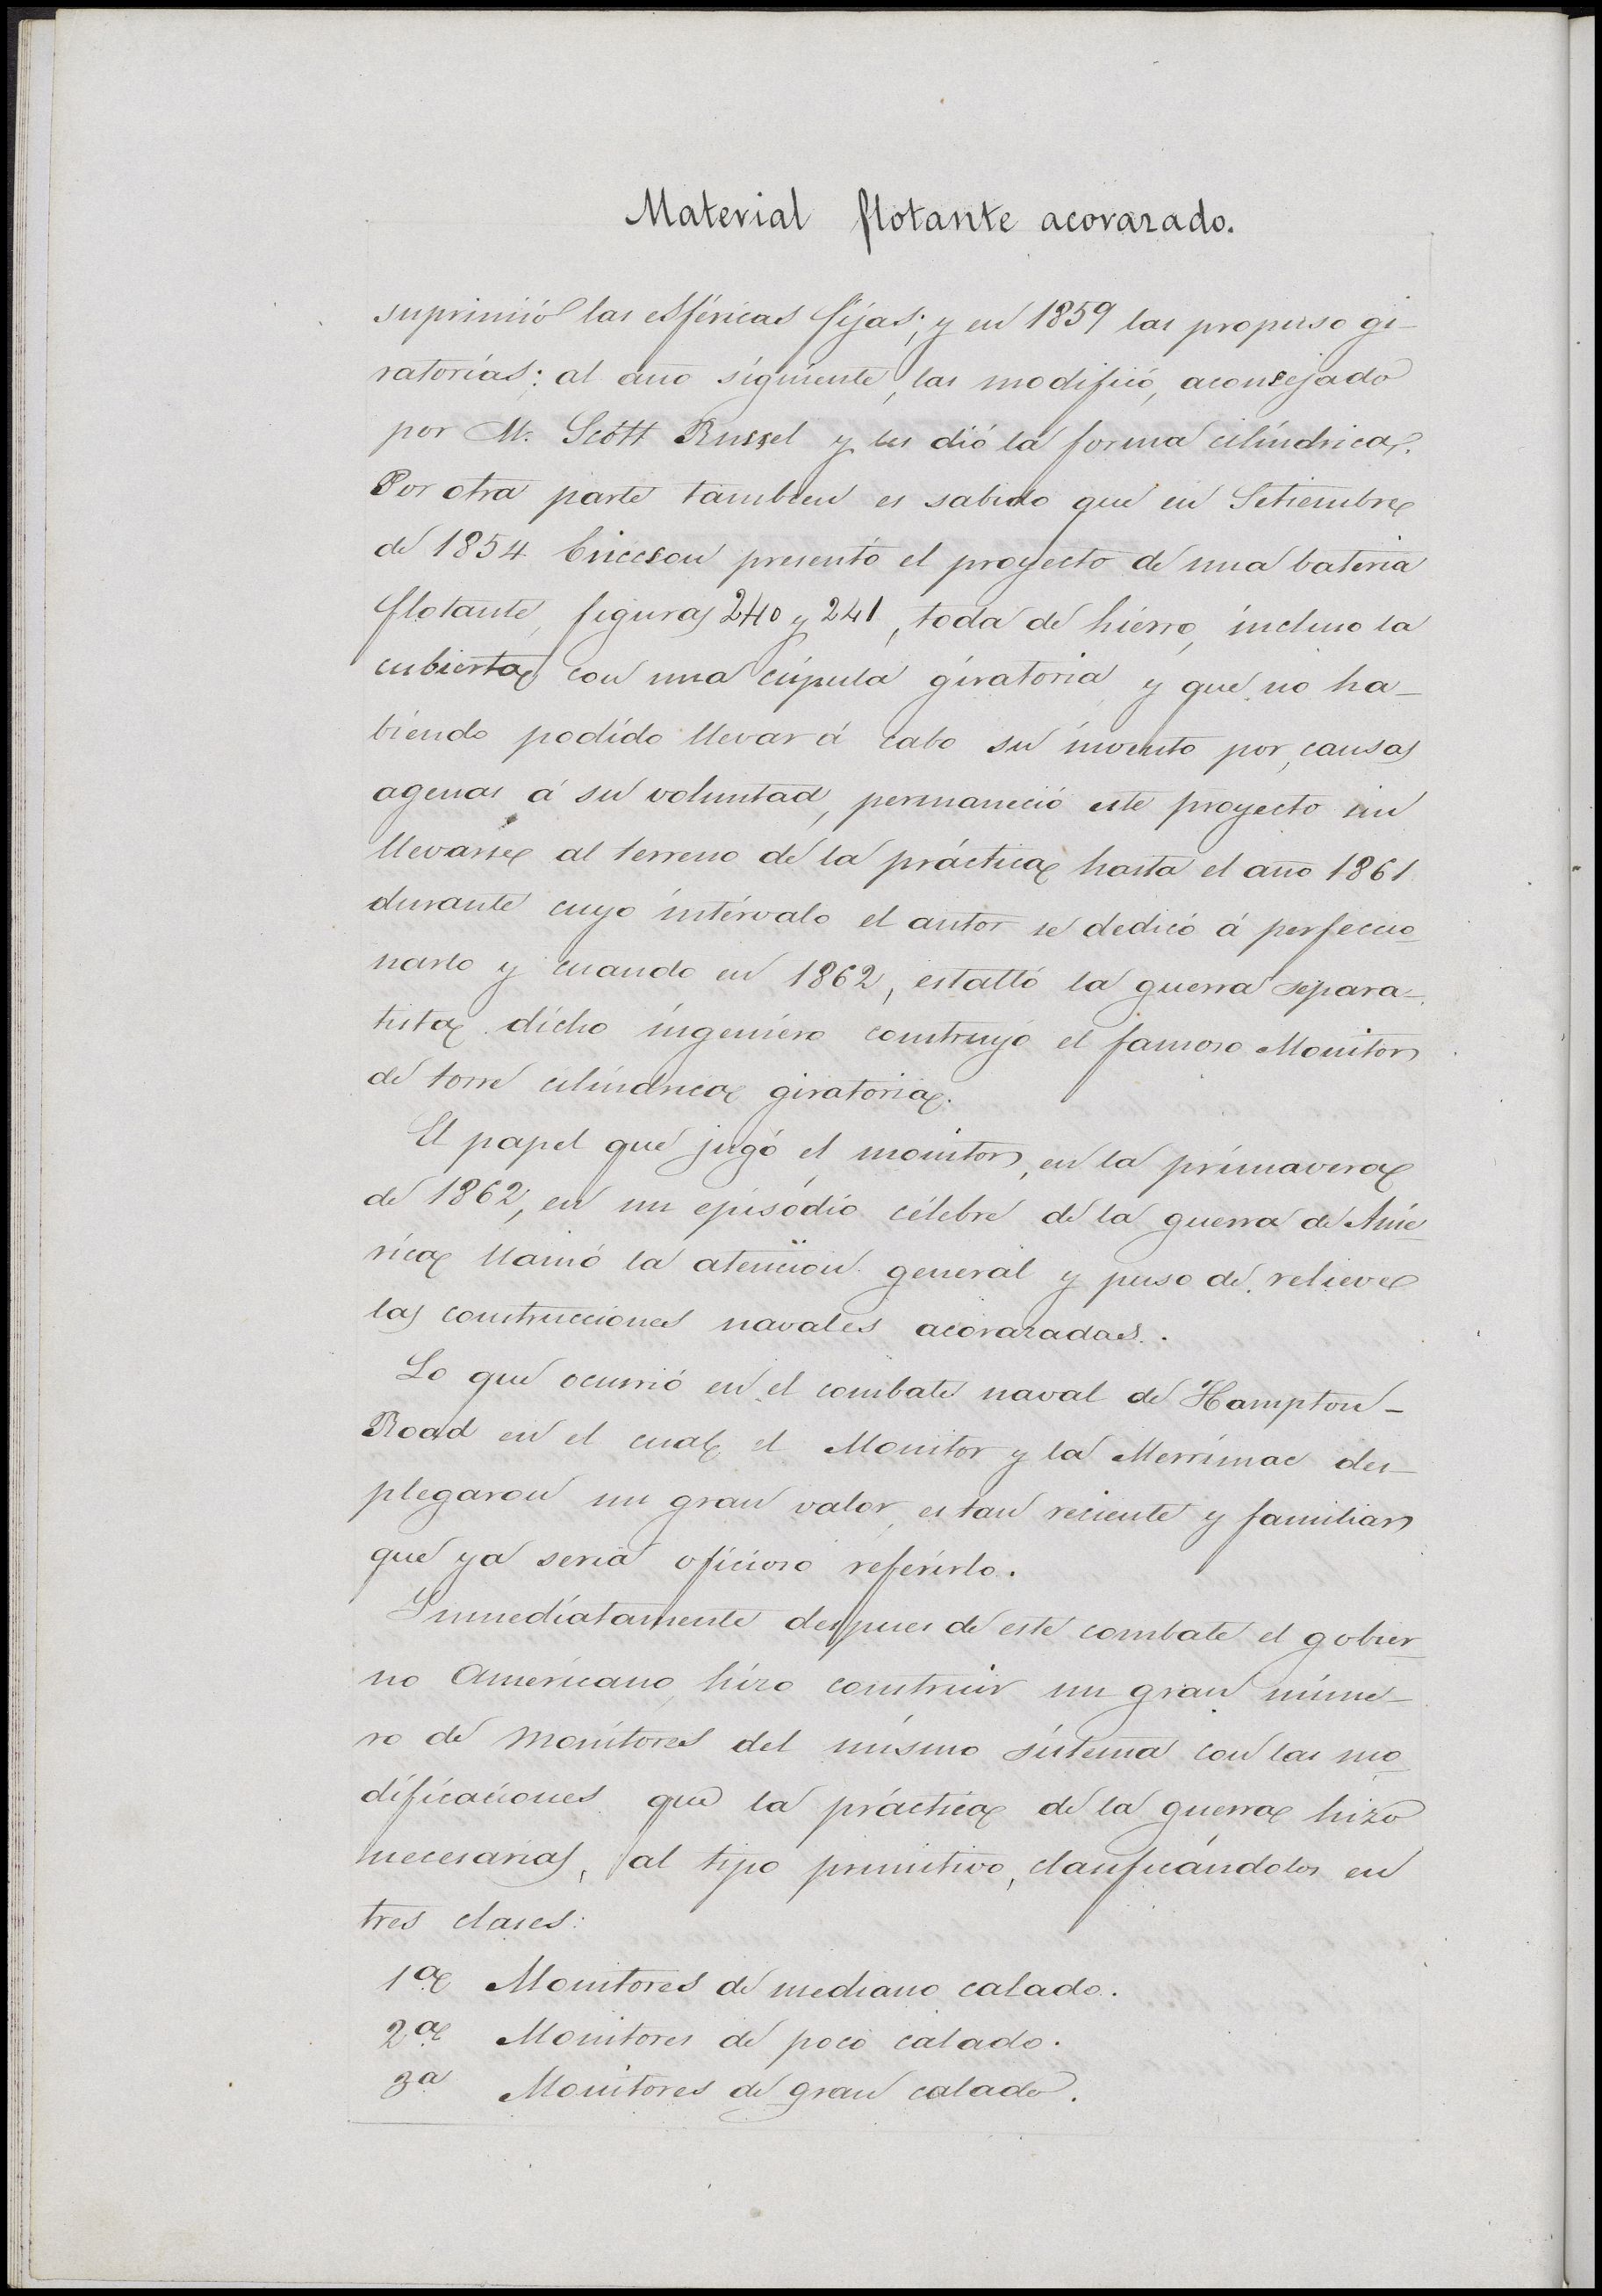 Material flotante acorazado.
suprimió las esféricas fijas; y en 1859 las propuso gi-
ratorias; al año siguiente, las modificó, aconsejado
por Mr. Scott Russel y les dió la forma cilíndrica.
Por otra parte tambien es sabido que en Setiembre
de 1854 Ericcson presentó el proyecto de una bateria
flotante, figuras 240 y 241, toda de hierro, incluso la
cubierta, con una cúpula giratoria, y que no ha-
biendo podido llevar á cabo su invento por causas
agenas á su voluntad, permaneció este proyecto sin
llevarse al terreno de la práctica hasta el año 1861
durante cuyo intérvalo el autor se dedicó á perfeccio-
narlo y cuando en 1862, estalló la guerra separa-
tista dicho ingeniero construyó el famoso Monitor
de torre cilíndrica giratoria.
El papel que jugó el monitor, en la primavera
de 1862, en un episódio célebre de la guerra de Amé-
rica llamó la atencion general y puso de relieve
las construcciones navales acorazadas.
Lo que ocurrió en el combate naval de Hampton-
Road en el cual el Monitor y la Merrimac des-
plegaron un gran valor, es tan reciente y familiar
que ya seria oficioso referirlo.
Inmediatamente despues de este combate el gobier-
no Americano, hizo construir un gran núme-
ro de monitores del mismo sistema con las mo-
dificaciones que la práctica de la guerra hizo
necesarias, al tipo primitivo, clasificándolos en
tres clases:
1ª Monitores de mediano calado.
2ª Monitores de poco calado.
3ª Monitores de gran calado.